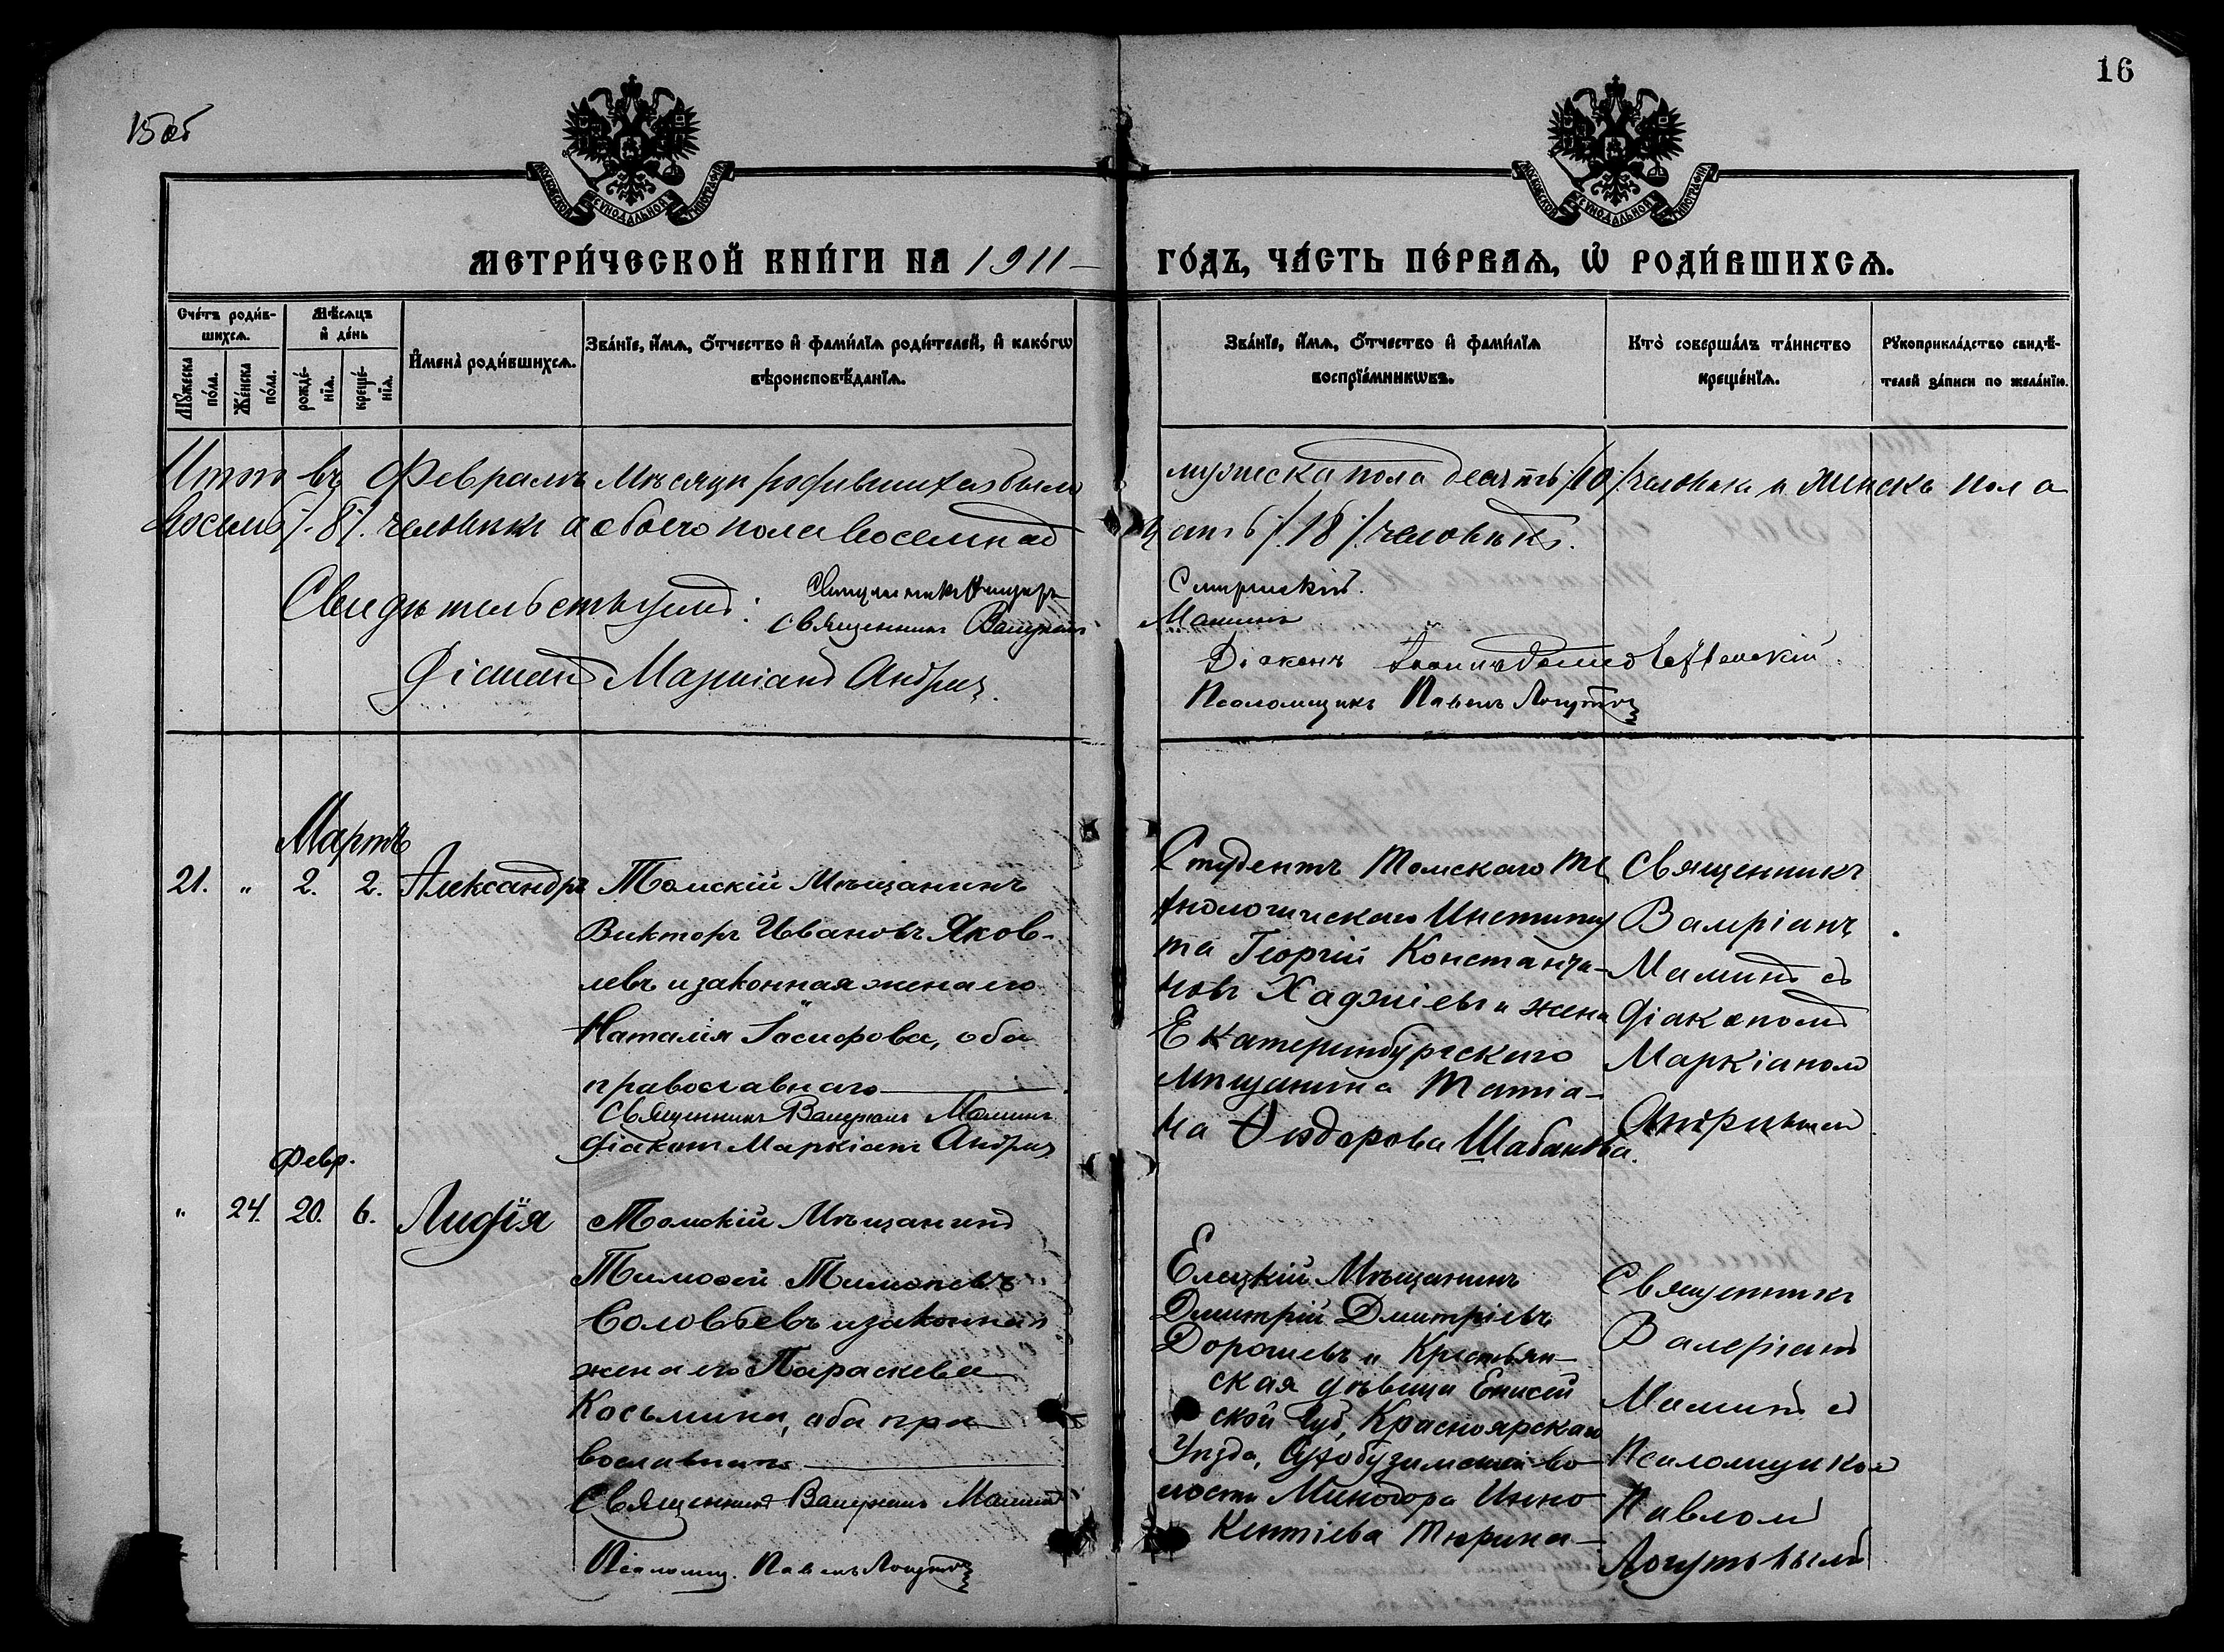 15об
16
МОСКОВСКОЙ СѴНОДАЛЬНОЙ ТИПОГРАФІИ
МОСКОВСКОЙ СѴНОДАЛЬНОЙ ТИПОГРАФІИ
МЕТРИ́ЧЕСКОЙ КНИ́ГИ НА 1911 – ГО́ДЪ, ЧА́СТЬ ПЕ́РВАѦ, Ѡ҆ РОДИ́ВШИХСѦ.
Сче́тъ роди́в-
шихсѧ.
Мѣ́сѧцъ
и҆ де́нь
Мꙋ́жеска
по́ла.
Же́нска
по́ла.
рожде́-
нїѧ.
креще́-
нїѧ.
И҆мена̀ роди́вшихсѧ.
Зва́нїе, и҆́мѧ, ѻ҆́тчество и҆ фами́лїѧ роди́телей, и҆ како́гѡ
вѣроисповѣ́данїѧ.
Зва́нїе, и҆́мѧ, ѻ҆́тчество и҆ фами́лїѧ
воспрїе́мникѡвъ.
Кто̀ соверша́лъ та́инство
креще́нїѧ.
Рꙋкоприкла́дство свидѣ́-
телей за́писи по жела́нїю.
Итого въ Февралѣ Мѣсяцѣ родившихся было мужеска пола десять /10/ человѣкъ и женска пола
восемь /8/. человѣкъ а обоего пола восемнад цать /18/ человѣкъ.
Свидѣтельствуемъ:
Священникъ Валеріанъ Маминъ
Діаконъ Маркіанъ Андр
Діаконъ
Псаломщикъ Павелъ Логутов
Мартъ
21. " 2. 2. Александръ
Томскій Мѣщанинъ
Викторъ Ивановъ Яков-
левъ и законная жена его
Наталія Іосифова, оба
православнаго
Священникъ Валеріанъ Маминъ
Діаконъ Маркіанъ Андр
Студентъ Томскаго Те
хнологическаго Институ
та Георгій Константи-
новъ Хаджіевъ и жена
Екатеринбургскаго
Мѣщанина Татіа-
на Ѳеодорова Шабанова.
Священникъ
Валеріанъ
Маминъ съ
діакономъ
Маркіаномъ
Февр.
" 24. 20. 6. Лидія
Томскій Мѣщанинъ
Тимоѳей Тимоѳеевъ
Соловьевъ и законная
жена его Параскева
Косьмина, оба пра
вославнаго
Священникъ Валеріанъ Маминъ
Псаломщ. Павелъ Логутов
Елецкій Мѣщанинъ
Дмитрій Дмитріевъ
Дорошевъ и Крестьян-
ская дѣвица Енисей
ской Губ, Красноярскаго
Уѣзда, Сухобузимской во-
лости Минодора Инно
кентіева Тюрина
Священникъ
Валеріанъ
Маминъ съ
Псаломщикомъ
Павломъ
Логутовымъ